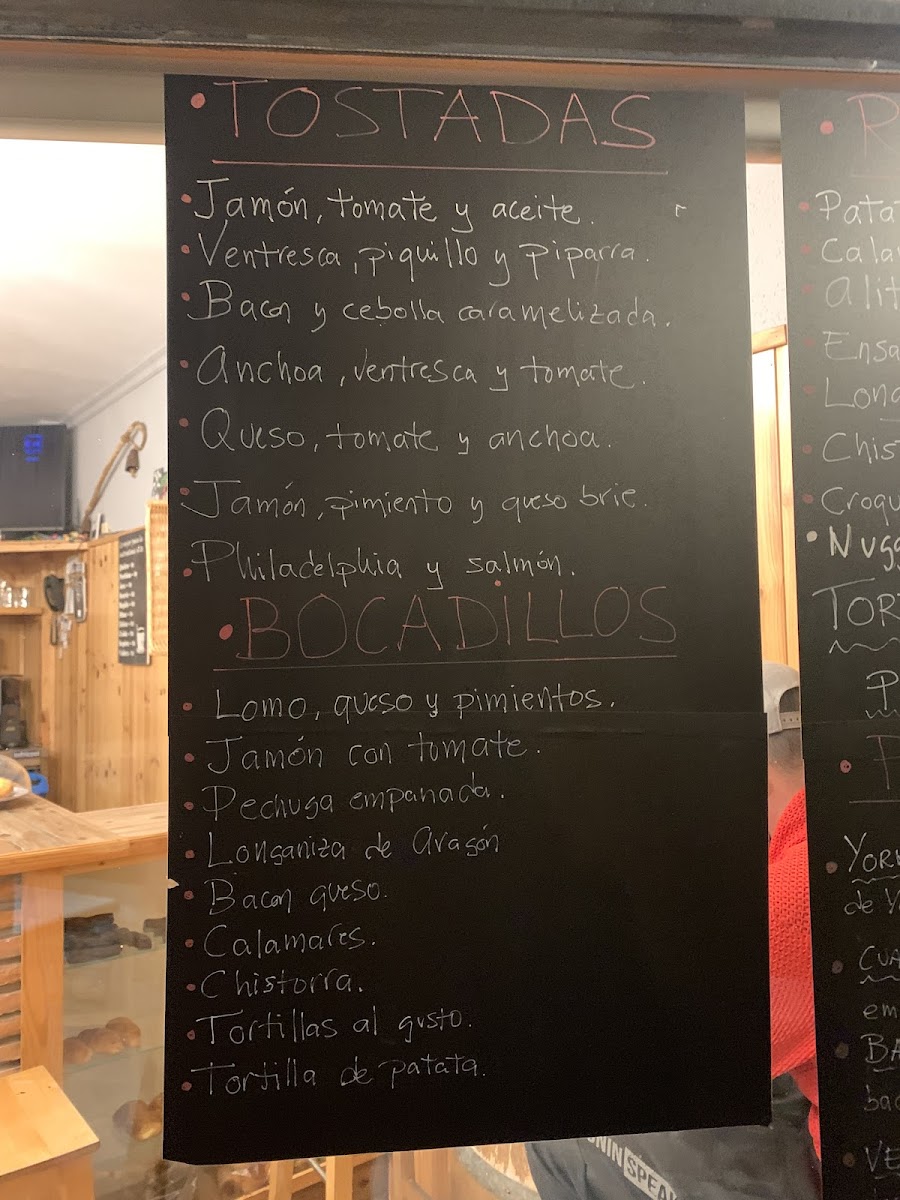 • TOSTADAS
• Jamón, tomate y aceite.
• Ventresca, piquillo y piparra.
• Bacon y cebolla caramelizada.
• Anchoa, ventresca y tomate.
• Queso, tomate y anchoa.
• Jamón, pimiento y queso brie.
• Philadelphia y salmón.
• BOCADILLOS
• Lomo, queso y pimientos.
• Jamón con tomate.
• Pechuga empanada.
• Longaniza de Aragón
• Bacon queso.
• Calamares.
• Chistorra.
• Tortillas al gusto.
• Tortilla de patata.
• R
• Pata
• Cala
• Alit
• Ensa
• Long
• Chis
• Croqu
• Nugg
TOR
P
•
• YORK
de Y
• CUA
em
• BA
bac
• VE
NIN SPEA